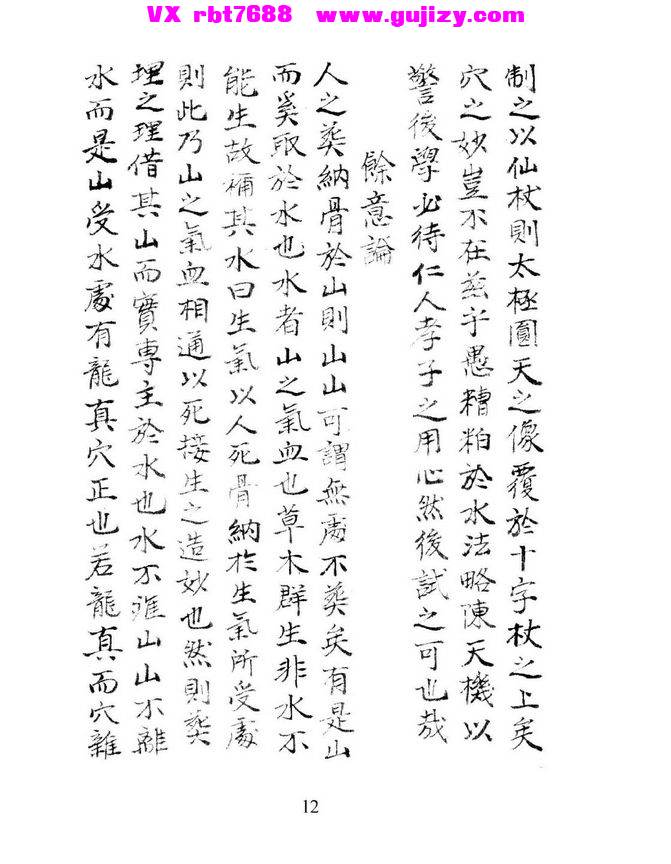 VX rbt7688 www.gujizy.com
制之以仙杖則太極圓天之像覆於十字杖之上矣
穴之妙豈不在玆乎愚糟粕於水法略陳天機以
警後學必待仁人孝子之用心然後試之可也哉
餘意論
人之葬納骨於山則山山可謂無處不葬矣有是山
而奚取於水也水者山之氣血也草木群生非水不
能生故稱其水曰生氣以人死骨納於生氣所受處
則此乃山之氣血相通以死接生之造妙也然則葬
埋之理借其山而實專主於水也水不離山山不離
水而是山受水處有龍真穴正也若龍真而穴雜
12